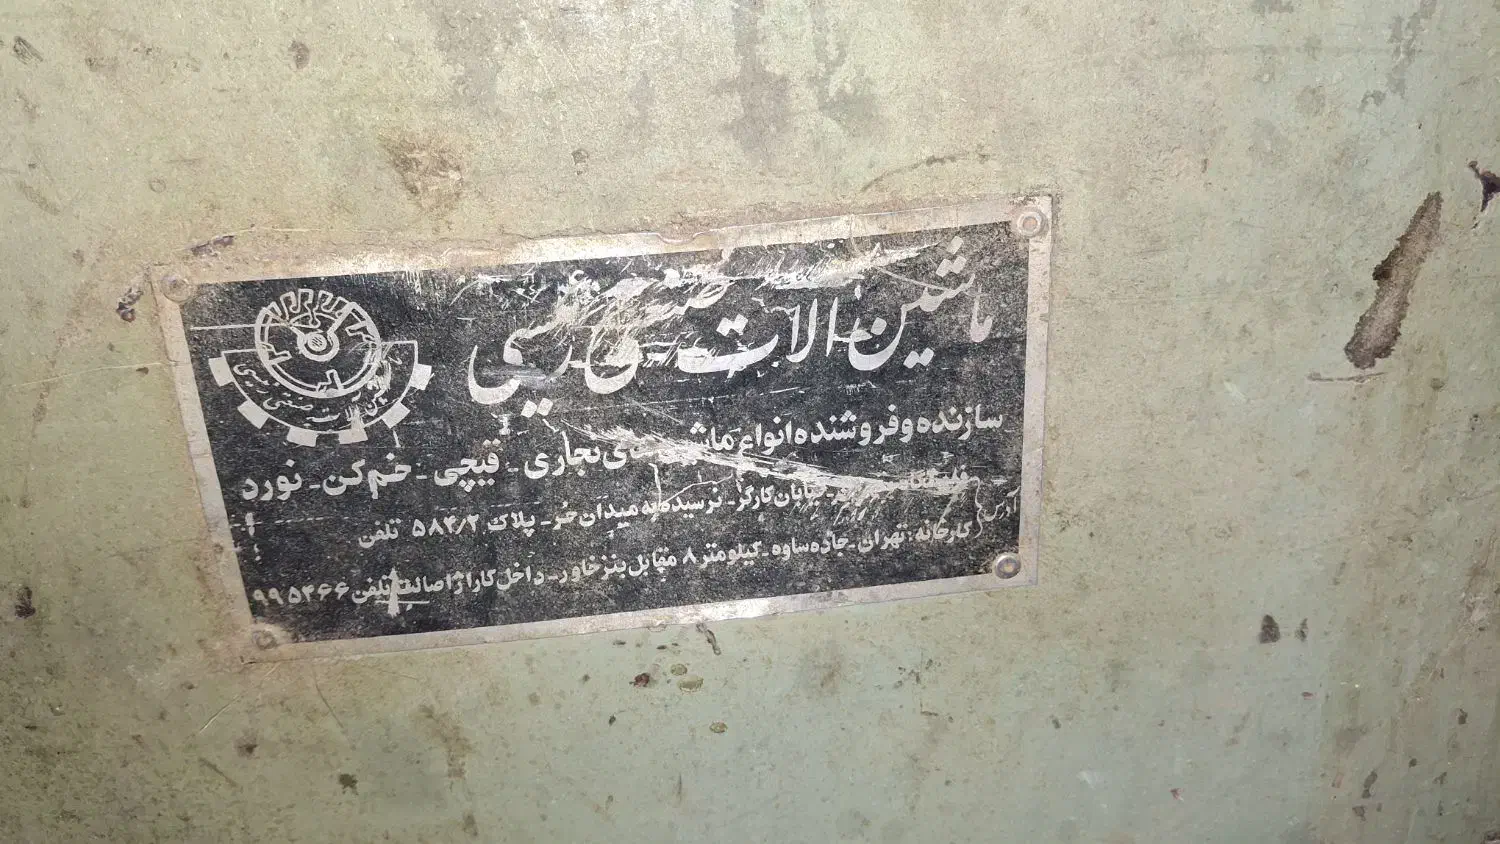 ماشین الات صنعتی
سازنده و فروشنده انواع ماشینهای نجاری - قیچی - خم کن - نورد
آدرس
خیابان کارگر - نرسیده به میدان حر - پلاک ۵۸۴/۲ تلفن
کارخانه: تهران - جاده ساوه - کیلومتر ۸ مقابل بنز خاور - داخل گاراژ اصالت تلفن ۹۹۵۴۶۶
صنعتی